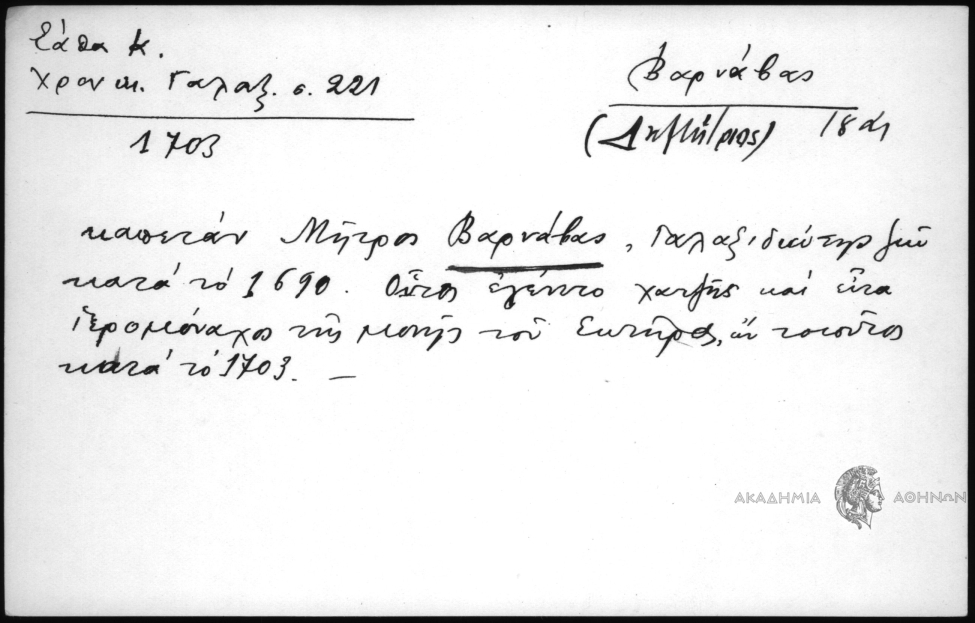 Σάθα Κ.
Χρονικ. Γαλαξ. σ. 221
1703
Βαρνάβας
(Δημήτριος) 18 αι
καπετάν Μῆτρος Βαρνάβας, Γαλαξιδιώτης ζῶν
κατά τό 1690. Οὗτος ἐγένετο χατζῆς καί εἶτα
ἱερομόναχος τῆς μονῆς τοῦ Σωτῆρος, ὤν τοιοῦτος
κατά τό 1703. —
ΑΚΑΔΗΜΙΑ ΑΘΗΝΩΝ